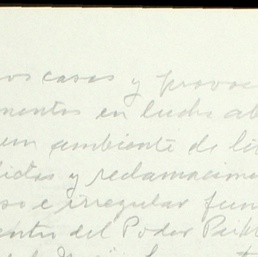 os casas y provoc
mentos en lucha ab
un ambiente de li
didas y reclamacione
so e irregular fun
entos del Poder Públ